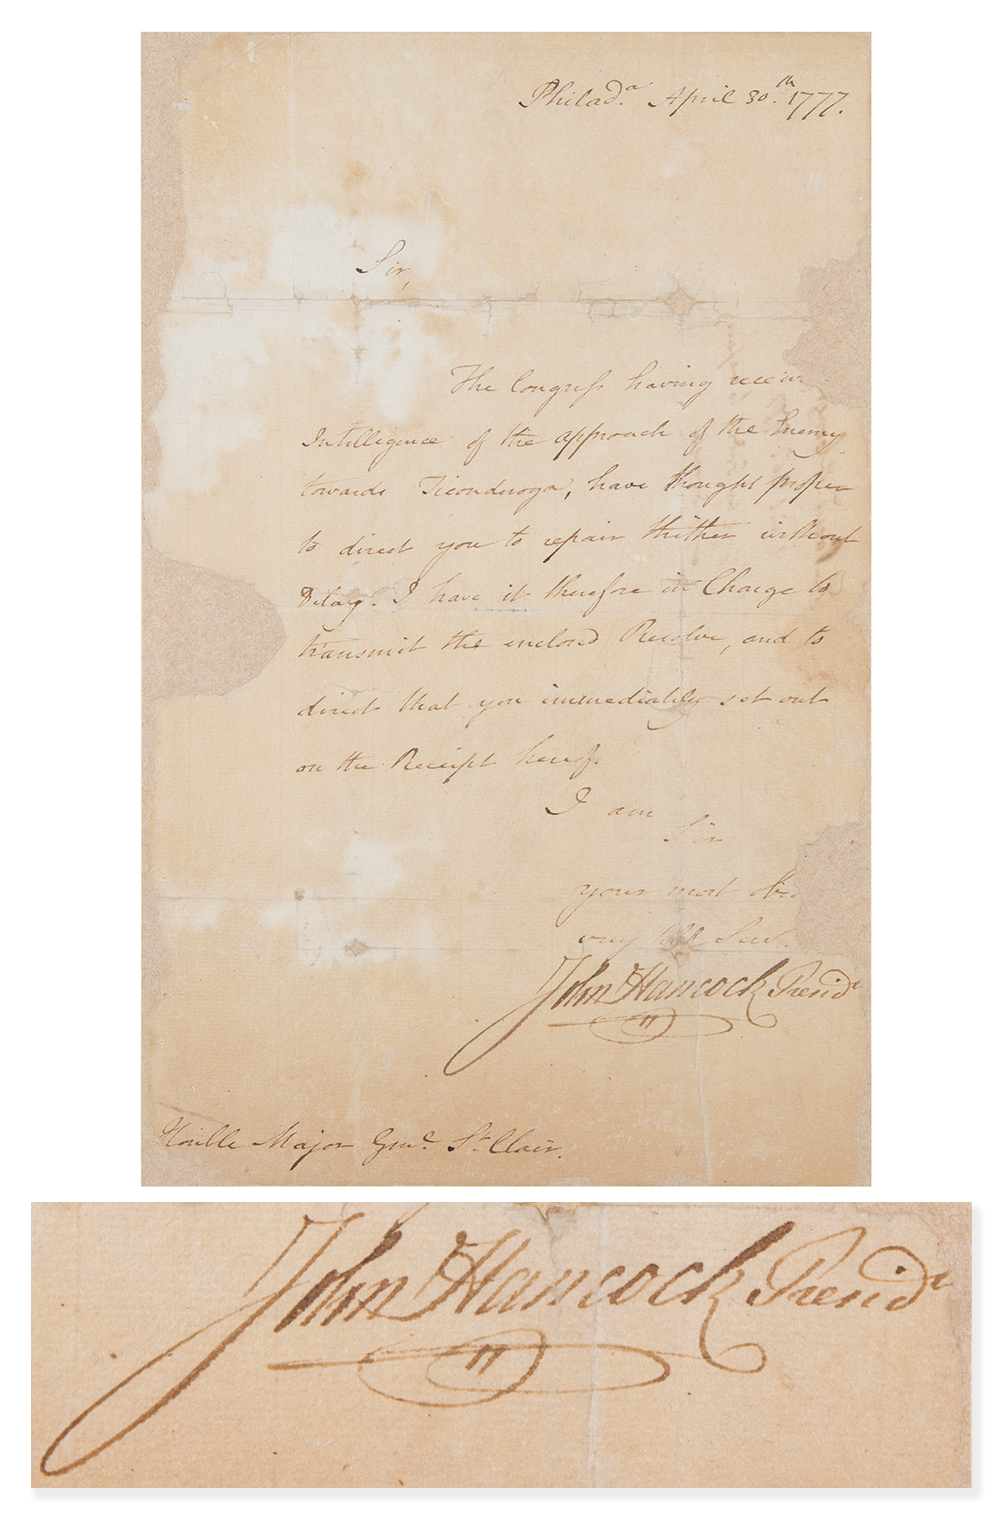 Philad.ª April 30.th 1777.
Sir,
The Congress having receiv
Intelligence of the approach of the Enemy
towards Ticonderoga, have thought proper
to direct you to repair thither without
Delay. I have it therefore in Charge to
transmit the enclosed Resolve, and to
direct that you immediately set out
on the Receipt hereof.
I am
Sir
your most obed
very hble Serv.
John Hancock Presidt
Honble Major Genl. St. Clair.
John Hancock Presidt